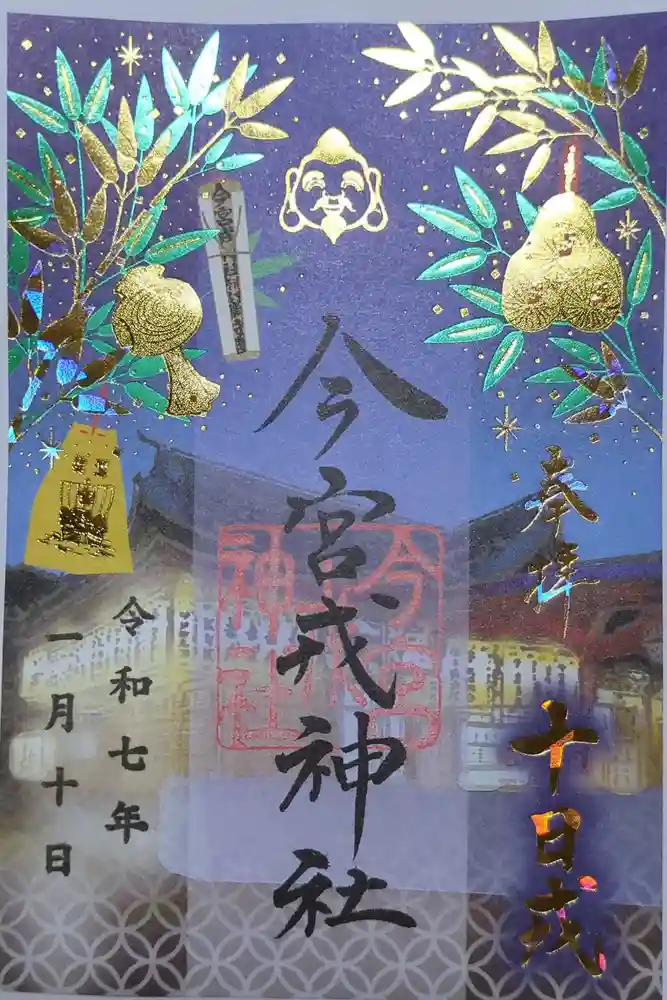 奉拝
十日戎
今宮戎神社
今宮戎神社
令和七年
一月十日